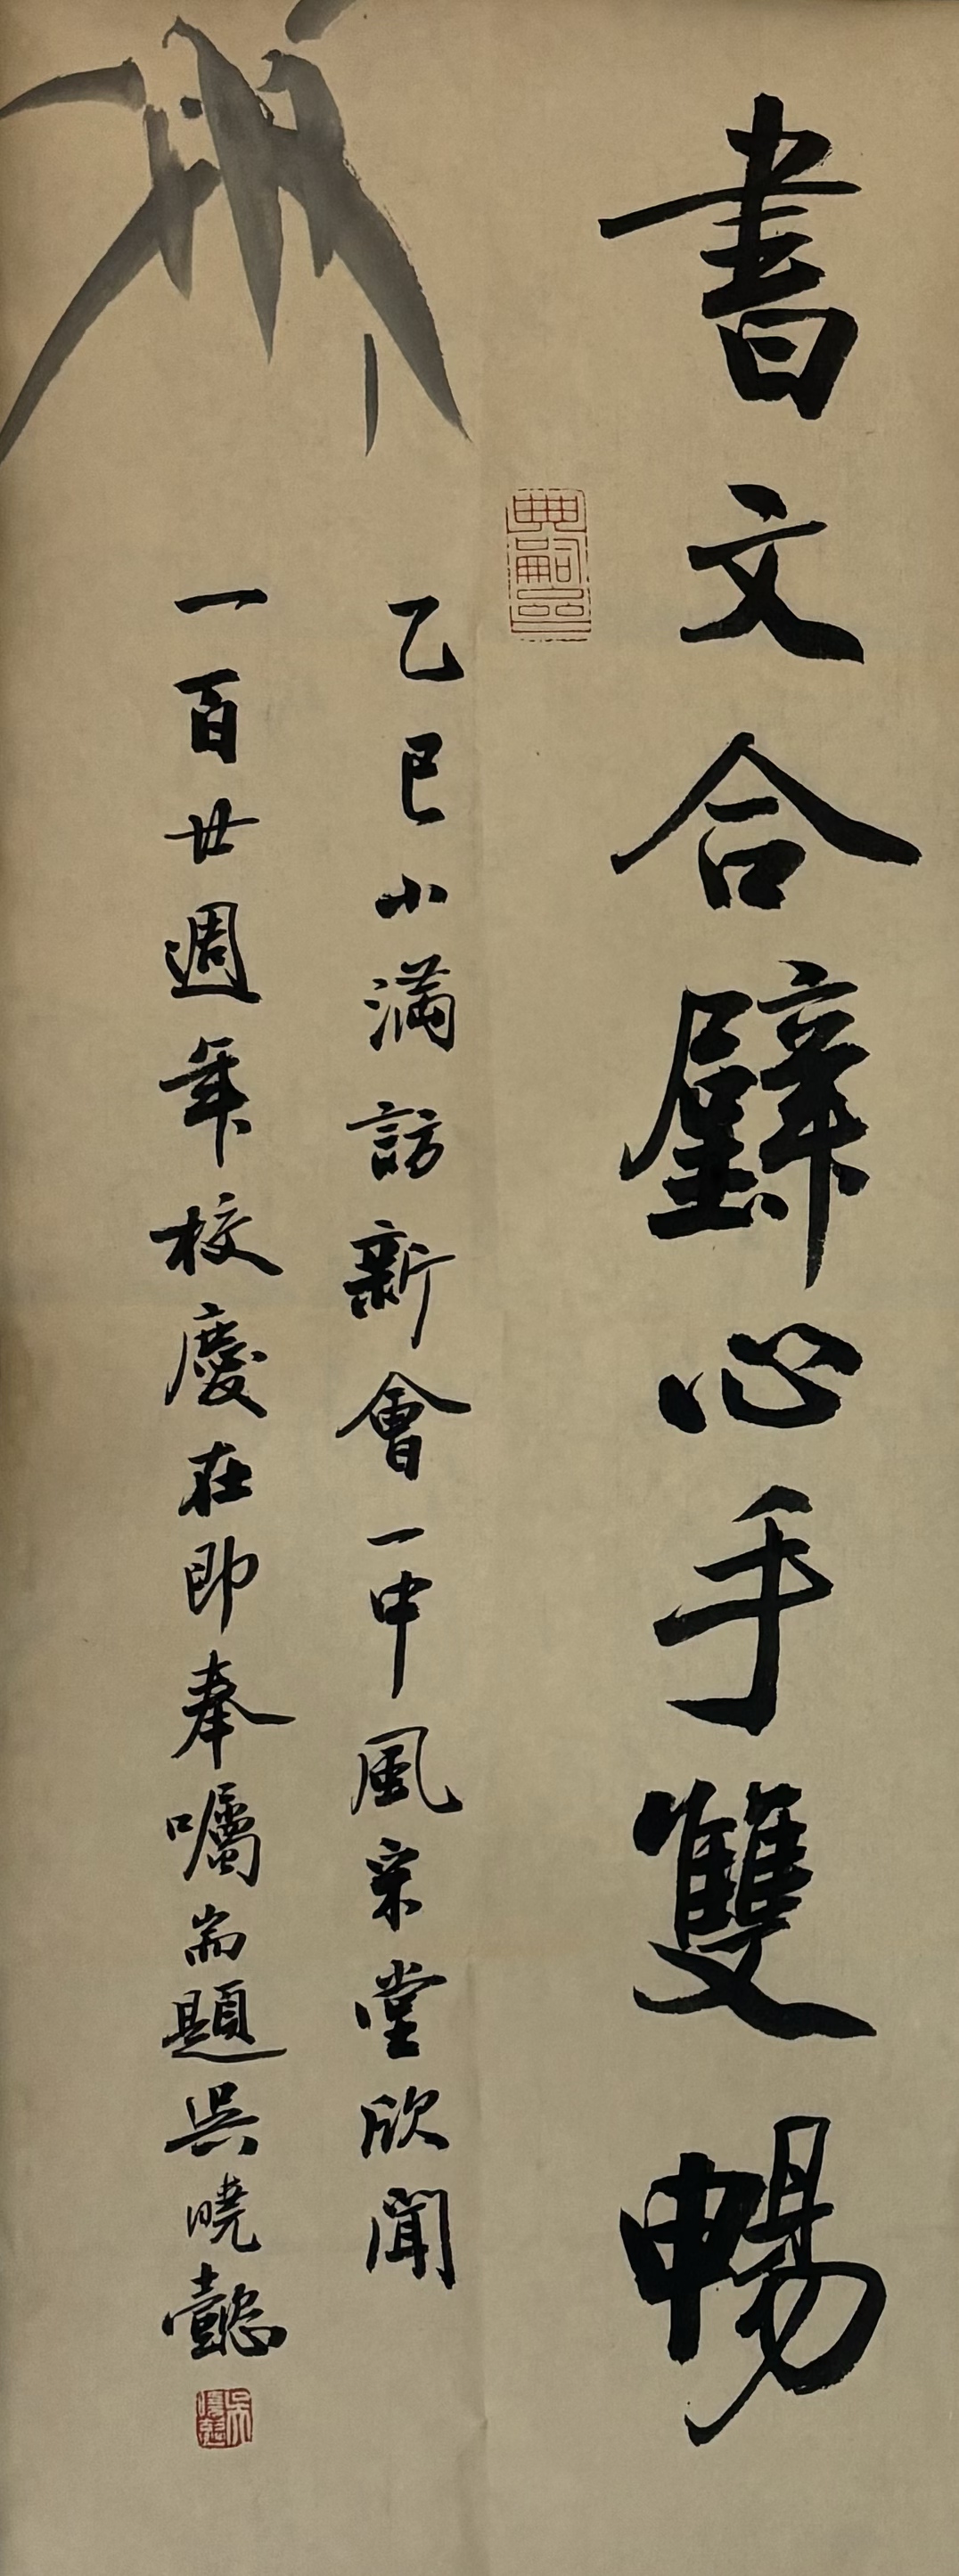 書文合璧心手雙暢
乙巳小滿訪新會一中風采堂欣聞
一百廿週年校慶在即奉囑耑題吳曉懿